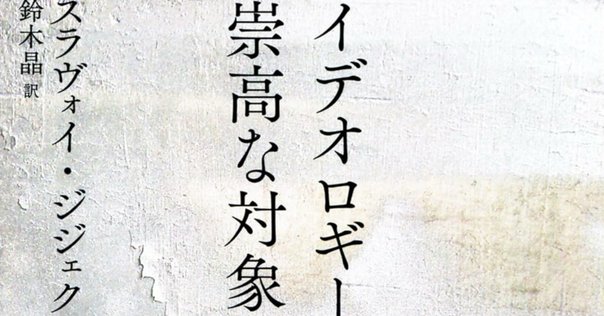 イデオロギー
崇高な対象
スラヴォイ・ジジェク
鈴木晶 訳